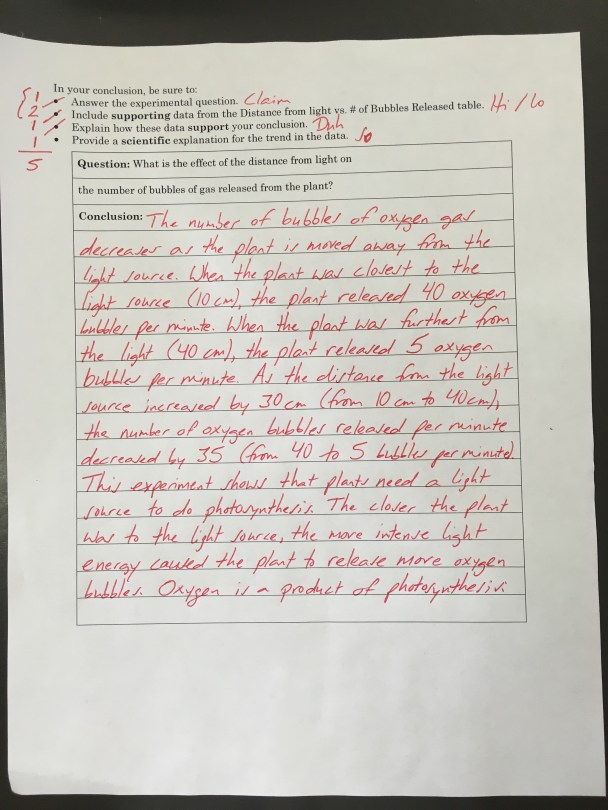 In your conclusion, be sure to:
1 • Answer the experimental question. Claim
2 • Include supporting data from the Distance from light vs. # of Bubbles Released table. Hi / Lo
1 • Explain how these data support your conclusion. Duh
1 • Provide a scientific explanation for the trend in the data. So
5
Question: What is the effect of the distance from light on
the number of bubbles of gas released from the plant?
Conclusion: The number of bubbles of oxygen gas
decreases as the plant is moved away from the
light source. When the plant was closest to the
light source (10 cm), the plant released 40 oxygen
bubbles per minute. When the plant was furthest from
the light (40 cm), the plant released 5 oxygen
bubbles per minute. As the distance from the light
source increased by 30 cm (from 10 cm to 40 cm),
the number of oxygen bubbles released per minute
decreased by 35 (from 40 to 5 bubbles per minute)
This experiment shows that plants need a light
source to do photosynthesis. The closer the plant
was to the light source, the more intense light
energy caused the plant to release more oxygen
bubbles. Oxygen is a product of photosynthesis.